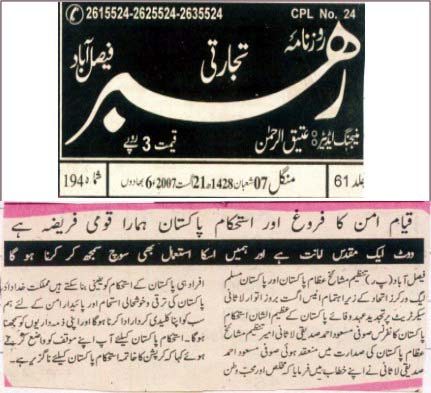 2615524-2625524-2635524
CPL No. 24
روزنامہ
تجارتی
رھبر
فیصل آباد
منیجنگ ایڈیٹر: عتیق الرحمٰن
قیمت 3 روپے
جلد 61 منگل 07 شعبان 1428ھ 21 اگست 2007ء 6 بھادوں شمارہ 194
قیام امن کا فروغ اور استحکام پاکستان ہمارا قومی فریضہ ہے
ووٹ ایک مقدس امانت ہے اور ہمیں اسکا استعمال بھی سوچ سمجھ کر کرنا ہو گا
فیصل آباد (پ ر) تنظیم مشائخ عظام پاکستان اور پاکستان مسلم
لیگ ورکرز اتحاد کے زیر اہتمام انیس اگست بروز اتوار لاثانی
سیکرٹریٹ پر تجدید عہد وفائے پاکستان کے عظیم الشان استحکام
پاکستان کانفرنس صوفی مسعود احمد صدیقی لاثانی امیر تنظیم مشائخ
عظام پاکستان کی صدارت میں منعقد ہوئی صوفی مسعود احمد
صدیقی لاثانی نے اپنے خطاب میں فرمایا کہ مخلص اور محب وطن
افراد ہی پاکستان کے استحکام کو یقینی بنا سکتے ہیں مملکت خداداد
پاکستان کی ترقی و خوشحالی استحکام اور پائیدار امن کے لئے ہم
سب کو اپنا کلیدی کردار ادا کرنا ہوگا اور اپنی ذمہ داریوں کو سمجھنا
ہوگا۔ استحکام پاکستان کیلئے آپ اپنے موقف کو واضح کرتے
ہوئے کہا کہ کرپشن کا خاتمہ استحکام پاکستان کیلئے ناگزیر ہے۔